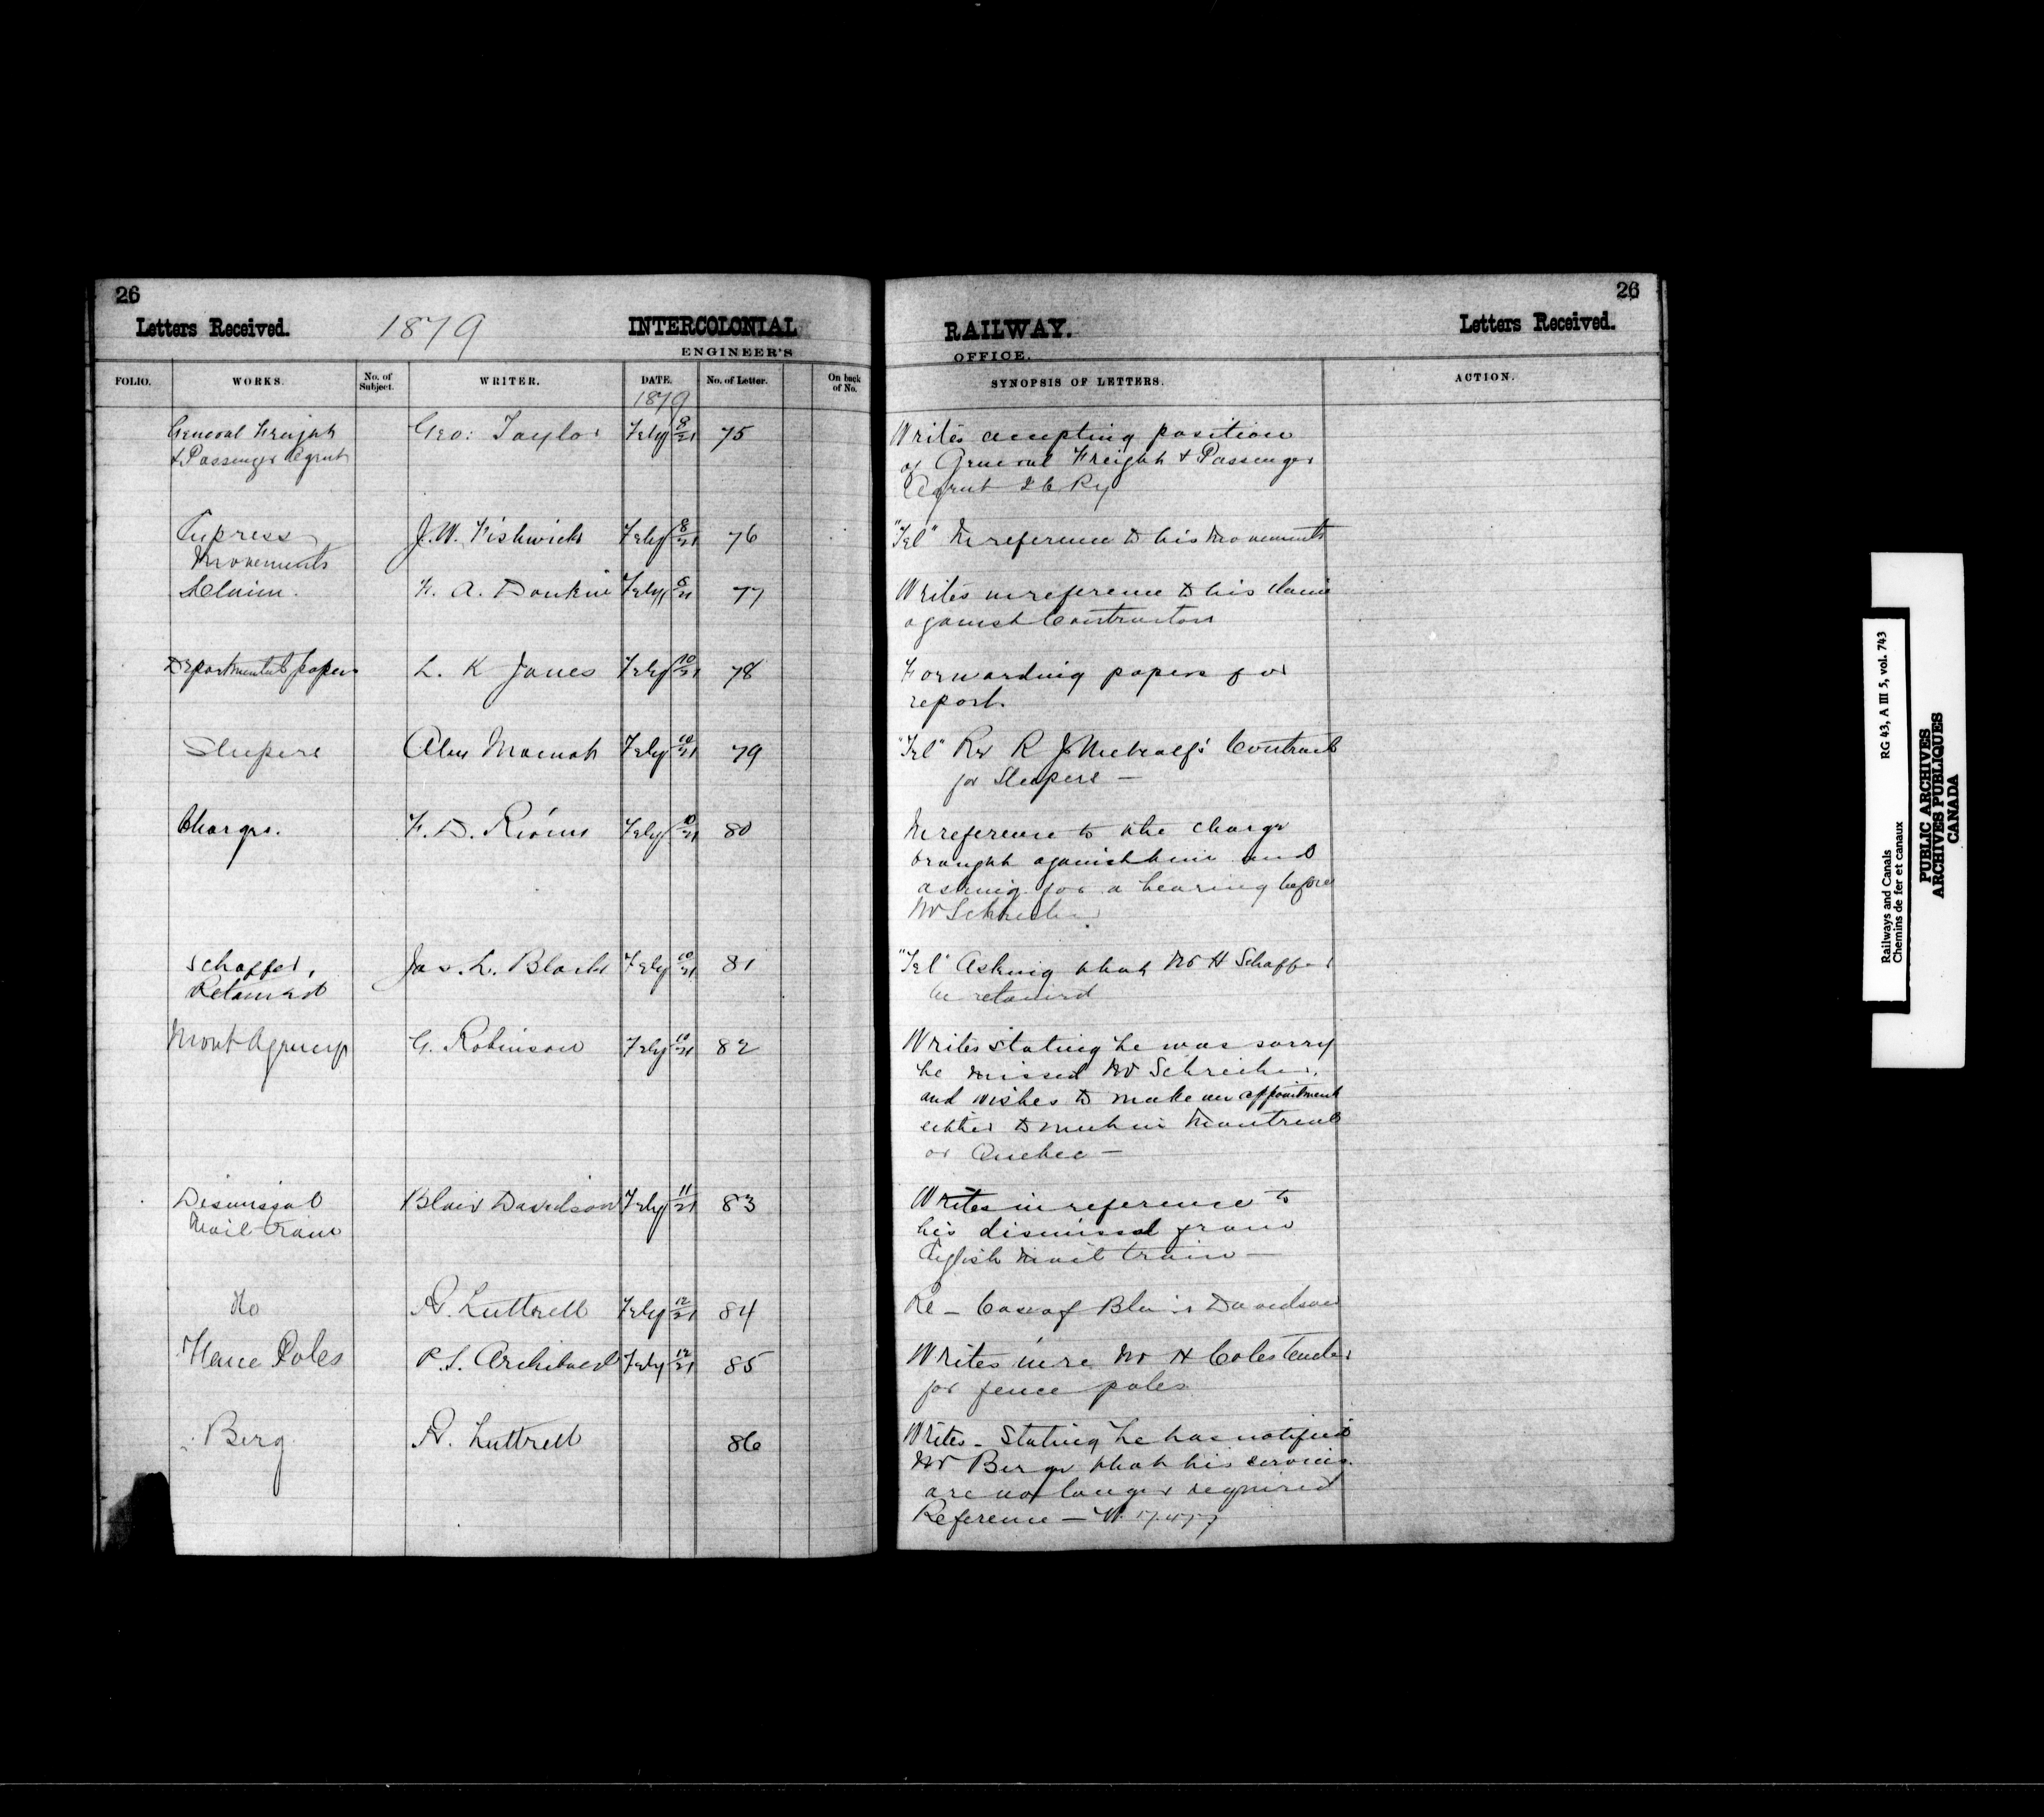 26
Letters Received.
1879
INTERCOLONIAL
ENGINEER'S
FOLIO.
WORKS.
No. of Subject.
WRITER.
DATE.
1879
No. of Letter.
On back of No.
General Freight
& Passenger Agent
Geo: Taylor
Feby 9/21
75
Express
Movements
J. W. Fishwick
Feby 8/21
76
Claim.
A. Donkin
Feby 8/21
77
Departmental papers
L. K Jones
Feby 10/21
78
Sleepers
Alex
Feby 10/21
79
Charges.
F. D.
Feby 10/21
80
Schaffer,
Retained
Jas. L. Black
Feby 10/21
81
Mont Agency
G. Robinson
Feby 10/21
82
Dismissal
Mail train
Blair Davidson
Feby 11/21
83
Do
A. Luttrell
Feby 12/21
84
Fence Poles
P. S. Archibald
Feby 12/21
85
Berg
A. Luttrell
86
26
RAILWAY.
OFFICE.
Letters Received.
SYNOPSIS OF LETTERS.
ACTION.
Writes accepting position
of General Freight & Passenger
Agent I C Ry
"Tel" In reference to his movements
Writes in reference to his claim
against Contractors
Forwarding papers for
report.
"Tel" Re R J Metcalf's Contract
for Sleepers —
In reference to the charge
brought against him and
asking for a hearing before
Mr Schreiber
"Tel" Asking that Mr H Schaffer
be retained
Writes stating he was sorry
he missed Mr Schreiber,
and wishes to make an appointment
either to meet in Montreal
or Quebec —
Writes in reference to
his dismissal from
English Mail train —
Re — Case of Blair Davidson
Writes in re Mr H Coles tender
for fence poles
Writes — Stating he has notified
Mr Berg that his services
are no longer required
Reference —
Railways and Canals
Chemins de fer et canaux
RG 43, A III 5, vol. 743
PUBLIC ARCHIVES
ARCHIVES PUBLIQUES
CANADA